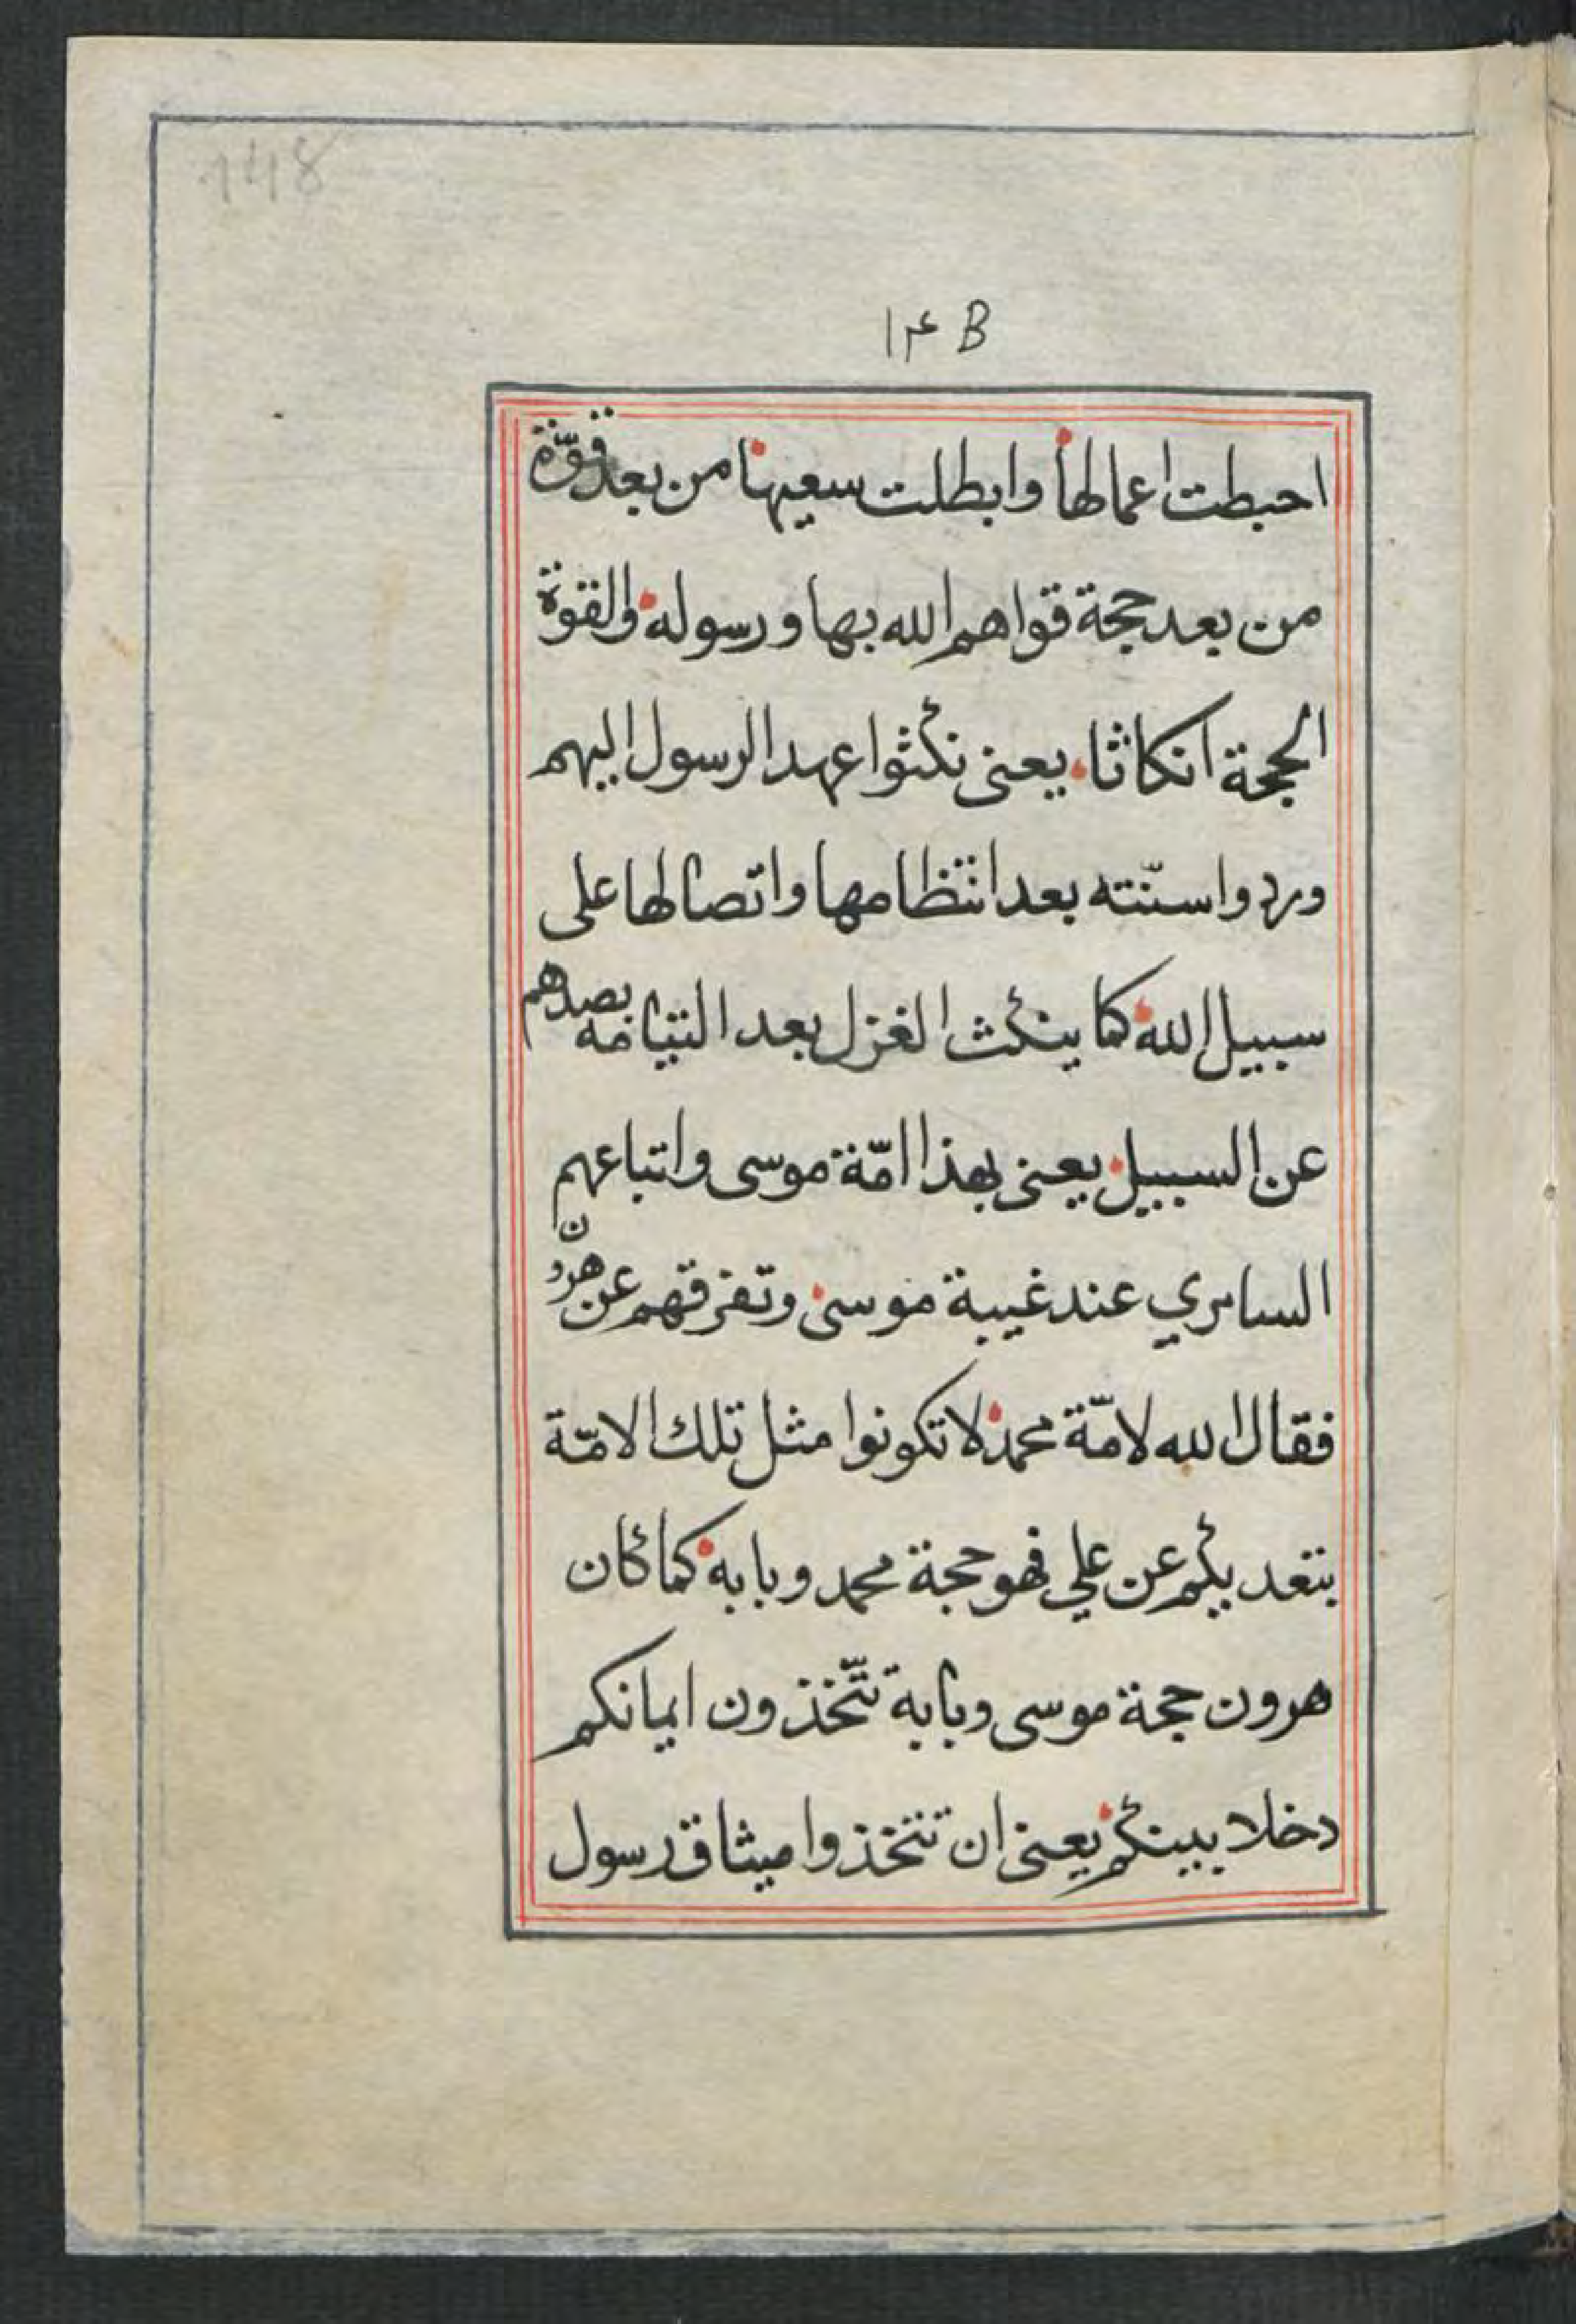 148
۱۴ B
احبطت اعمالها وابطلت سعيها من بعد قوّة
من بعد حجة قواهم الله بها ورسوله والقوة
الحجة انكاثا يعنى نكثوا عهد الرسول اليهم
وردوا سنّته بعد انتظامها واتصالها على
سبيل الله كما ينكث الغزل بعد التيامه بصدهم
عن السبيل يعنى بهذا امّة موسى واتباعهم
السامري عند غيبة موسى وتفرقهم عن هرون
فقال الله لامّة محمد لا تكونوا مثل تلك الامّة
بتعديكم عن علي فهو حجة محمد وبابه كما كان
هرون حجة موسى وبابه تتّخذون ايمانكم
دخلا بينكم يعنى ان تتخذوا ميثاق رسول